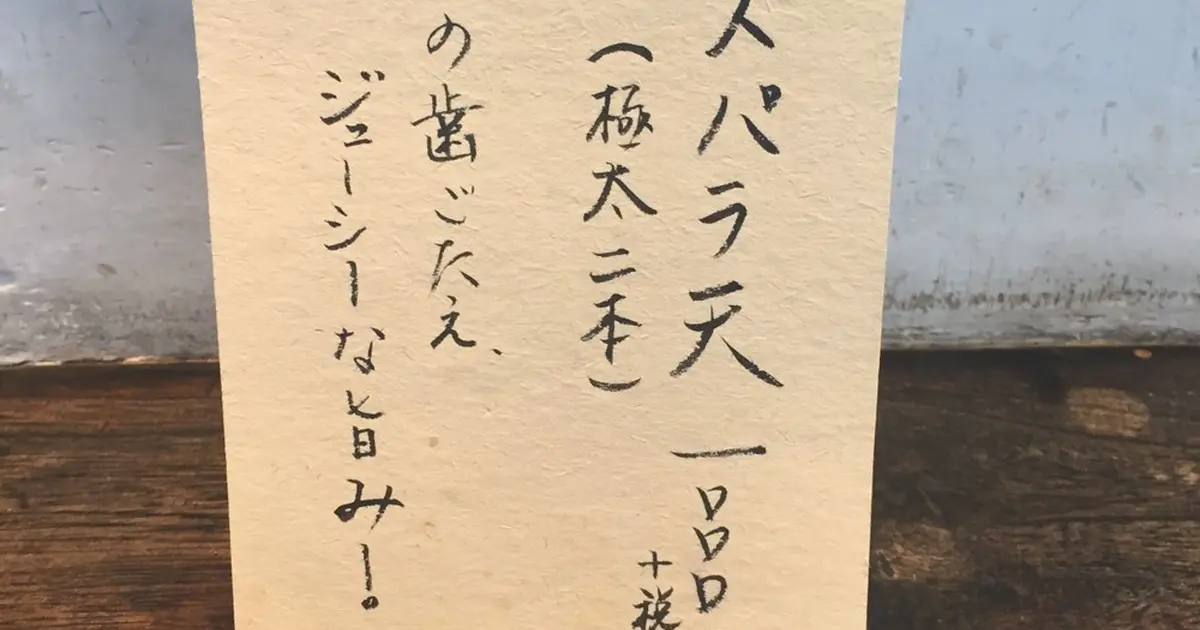 スパラ天 一〇〇〇
+税
(極太二本)
の歯ごたえ、
ジューシーな旨み!